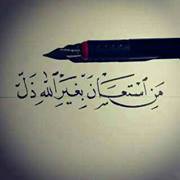 مَنِ ٱسْتَعَانَ بِغَيْرِ اللهِ ذَلَّ